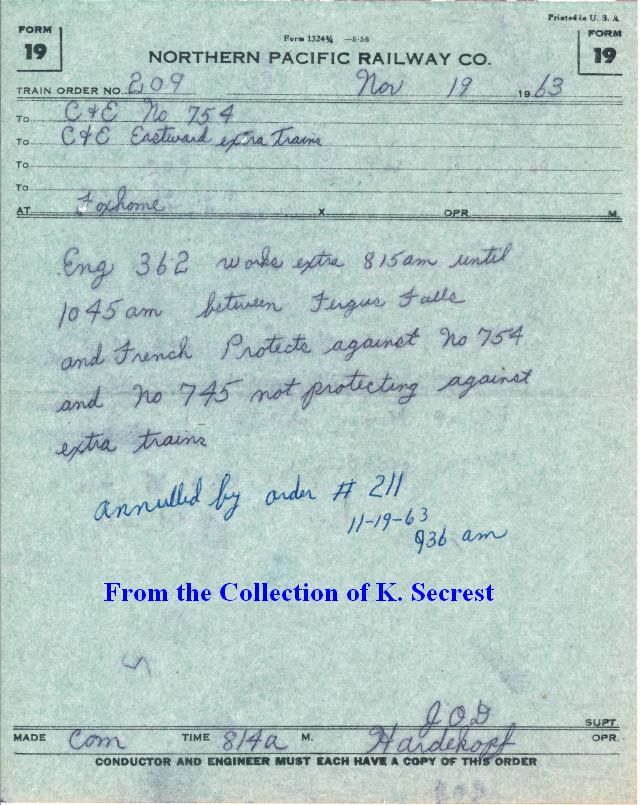 Printed in U. S. A.
Form 1324¾ —5-56
FORM 19
FORM 19
NORTHERN PACIFIC RAILWAY CO.
TRAIN ORDER NO. 209 Nov 19 1963
To C&E No 754
To C&E Eastward extra Trains
To
To
AT Foxhome X OPR. M.
Eng 362 works extra 815am until
1045am between Fergus Falls
and French Protects against No 754
and No 745 not protecting against
extra trains
annulled by order # 211
11-19-63
936 am
From the Collection of K. Secrest
JOD SUPT.
MADE Com TIME 814a M. Hardekopf OPR.
CONDUCTOR AND ENGINEER MUST EACH HAVE A COPY OF THIS ORDER